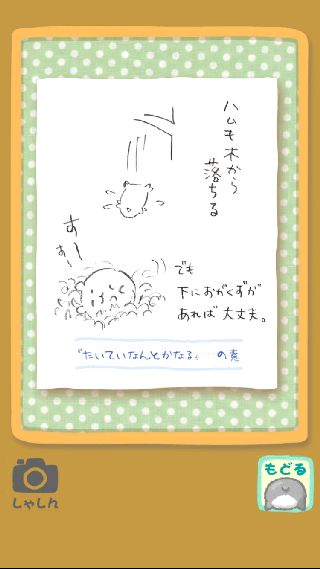 ハムも木から
落ちる
す
す
でも
下におがくずが
あれば大丈夫。
『たいていなんとかなる』の素
しゃしん
もどる